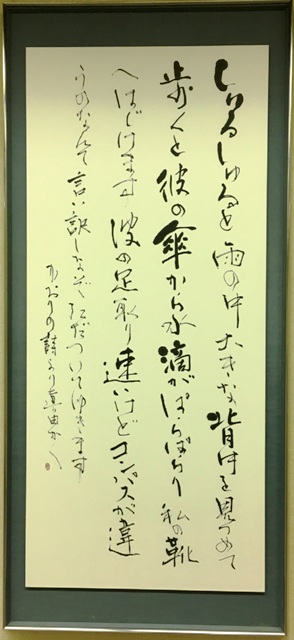 しゅるしゅると雨の中大きな背中を見つめて
歩くと彼の傘から水滴がぱらぱらり私の靴
へはじけます彼の足取り速いけどコンパスが違
うのなんて言い訳しなぞただついてゆきます
かおりの詩より真由か